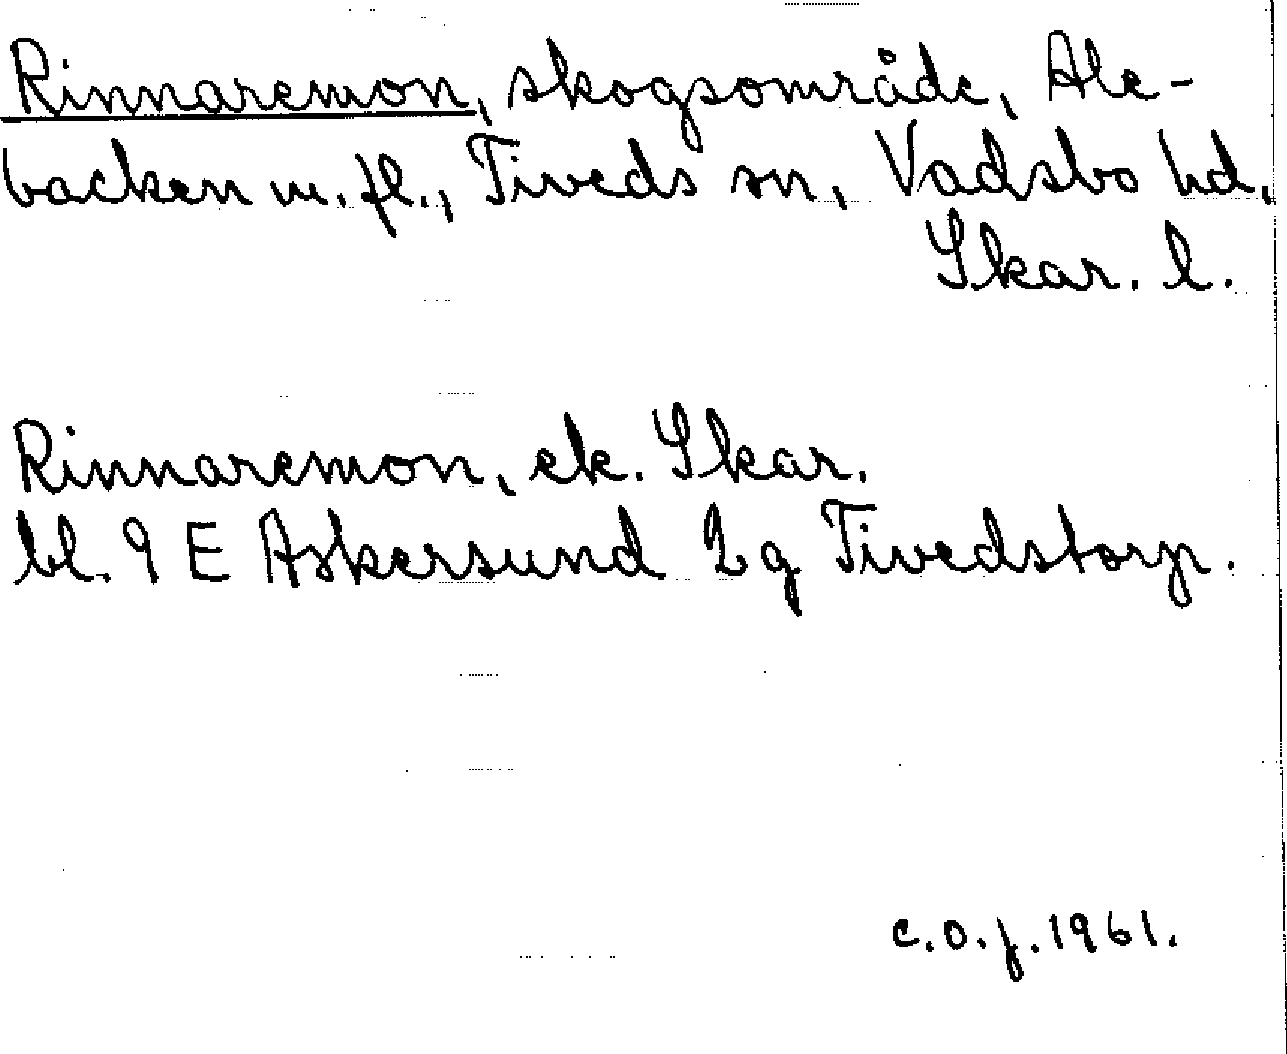 Rinnaremon, skogsområde, Ale-
backen m.fl., Tiveds sn, Vadsbo hd,
Skar. l.
Rinnaremon, ek. Skar.
bl. 9 E Askersund 2 g Tivedstorp.
C.O.f. 1961.